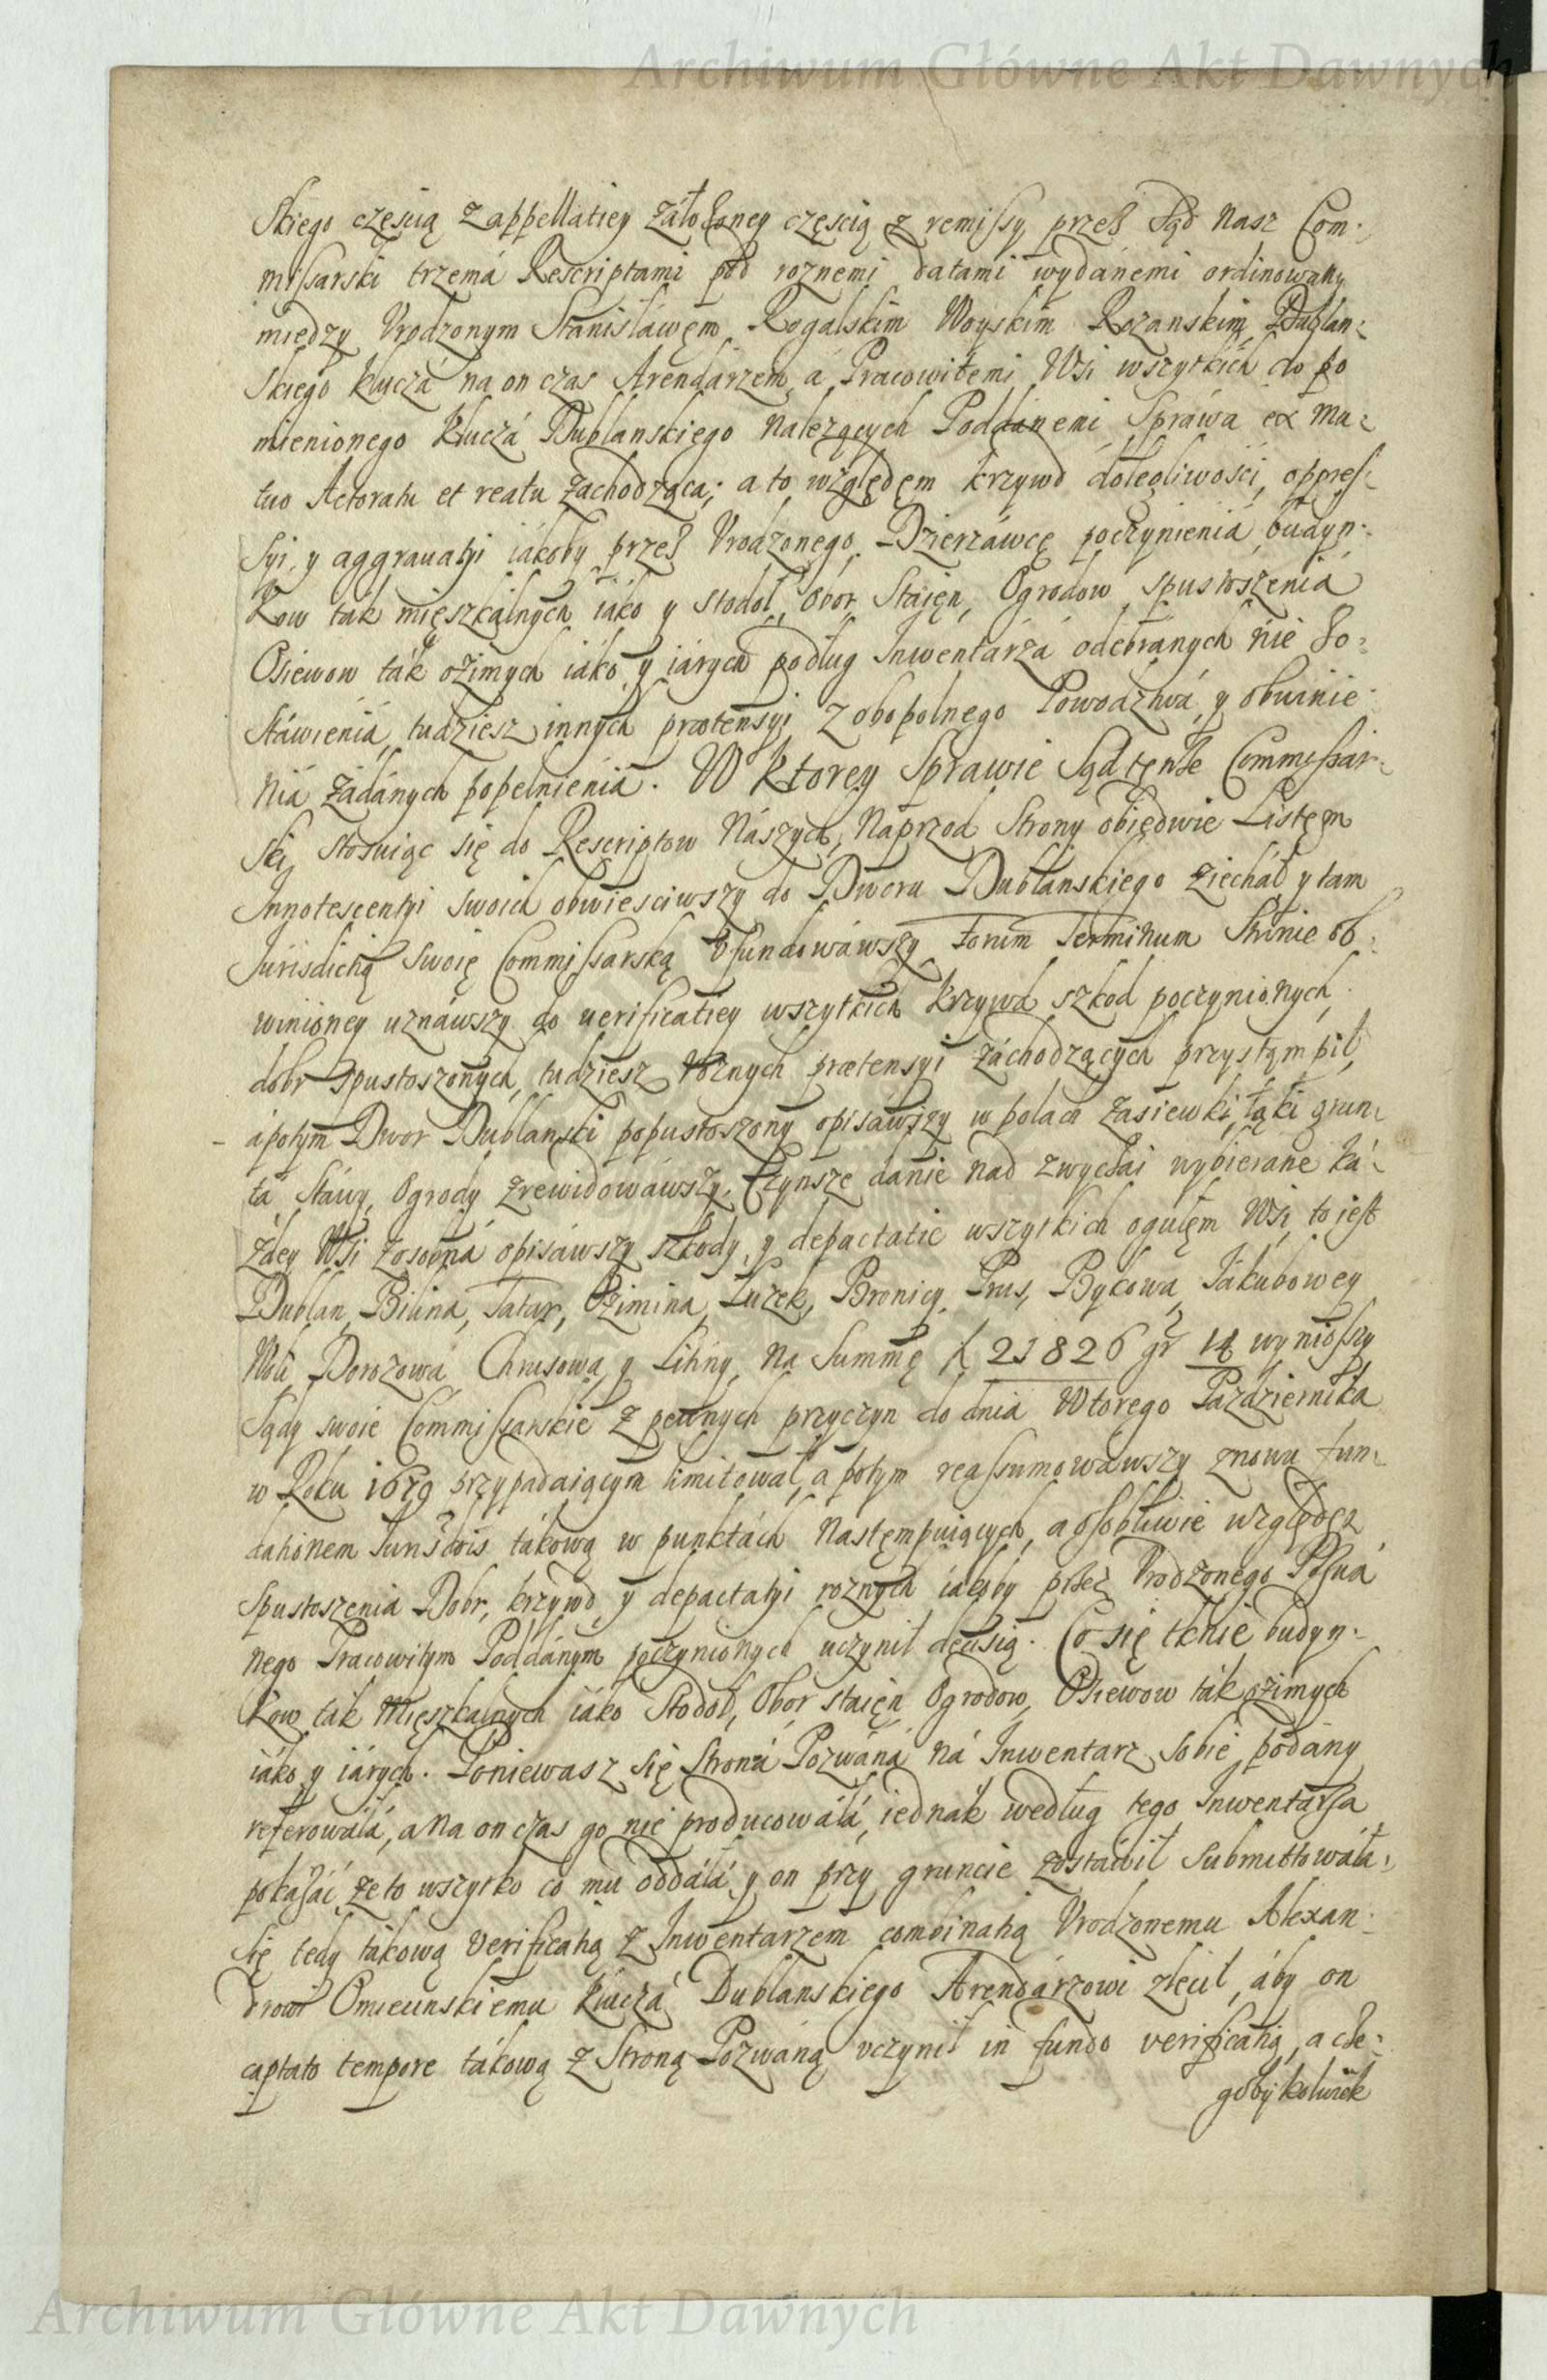 Archiwum Główne Akt Dawnych
Skiego częscią z appellatiey záłożoney częscią z remissy przez Sąd Nasz Com-
missarski trzemá Rescriptami pod roznemi datami wydánemi ordinowány
między Vrodzonym Stanisláwęm Rogalskim Woyskim Rozanskim, Dublan-
skiego kluczá na on czas Arendárzem, á Pracowitemi Wsi wszytkich do po
mienionego Kluczá Dublanskiego Nalezących Poddánemi Spráwa ex mu-
tuo Actoratu et reatu záchodząca; a to względęm krzywd dolegliwosci, oppres-
syi, y aggrauatyi iákoby przez Vrodzonego Dzierzáwcę poczynienia, budyn-
kow ták mięszkálnych iáko y stodoł, obor, Stáięn, Ogrodow, spustoszenia
Osiewow ták ozimych iáko y iárych podług Inwentárzá odebránych nie zo-
stáwienia, tudziesz innych prætensyi z obopolnego Powodztwá, y obuinie-
niá zádánych popełnienia. W ktorey Sprawie Sąd tęnże Commissar-
ski, stosuiąc się do Rescriptow Nászych, Naprzod Strony obiedwie Listęm
Innotescentyi swoich obwiesciwszy do Dworu Dublanskiego ziechał y tam
Jurisdictią Swoię Commissarską vfundowáwszy, Tonim Terminum Stronie ob-
winioney uznáwszy do uerificatiey wszytkich krzywd szkod poczynionych,
dobr spustoszonych, tudziesz roznych prætensyi záchodzących przystąmpił,
á potym Dwor Dublanski popustoszony opisáwszy w polach zásiewki, łąki grun-
tá, Stáwy, Ogrody zrewidowáwszy. Czynsze dánie nad zwyczái wybierane ká-
żdey Wsi zosobná opisáwszy szkody, y depactatie wszytkich ogułęm Wsi, to iest
Dublan, Bilina, Tatar, Ozimina, Luzek, Bronicy, Prus, Bykowa, Jákubowey
Woli, Dorozowa, Chrusowa, y Litiny, Na Summę ƒ 21826 gr 14 wyniosszy
Sądy swoie Commissarskie z pewnych przyczyn do dnia Wtorego Pazdziernika
w Roku 1679 przypadaiącym limitował, a potym reassumowawszy znowu fun-
dationem Jurisdois tákową w punktách Nastęmpuiących, a osobliwie względęm
Spustoszenia Dobr, krzywd, y depactatyi roznych iákoby przez Vrodzonego Pozwá
nego Pracowitym Poddánym poczynionych uczynił decisią. Co się tknie budyn-
kow ták Mięszkalnych iáko Stodoł, Obor, staięn, Ogrodow, Osiewow ták ozimych
iáko y iárych. Poniewasz się Stroná Pozwáná ná Inwentarz sobie podány
referowálá, a na on czas go nie producowáłá, iednák według tego Inwentarza
pokázáć, że to wszytko co mu oddáłá, y on przy gruncie zostáwił submittowáłá
się tedy tákową verificatią z Inwentarzem combinatią Vrodzonemu Alexan-
drowi Omiecinskiemu kluczá Dublanskiego Arendárzowi zlecił, áby on
captato tempore tákową z Stroną Pozwáną vczynił in fundo verificatią, a cze-
gobykolwiek
Archiwum Główne Akt Dawnych